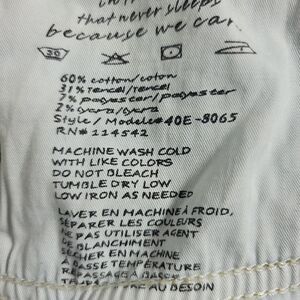 that never sleeps
because we car
30
60% cotton/coton
31% Tencel/Tencel
7% polyester/polyester
2% lycra/lycra
Style / Modele# 40E-8065
RN# 114542
MACHINE WASH COLD
WITH LIKE COLORS
DO NOT BLEACH
TUMBLE DRY LOW
LOW IRON AS NEEDED
LAVER EN MACHINE À FROID,
SÉPARER LES COULEURS
NE PAS UTILISER AGENT
DE BLANCHIMENT
SÉCHER EN MACHINE
À BASSE TEMPÉRATURE
REPASSAGE À BASSE
AU BESOIN